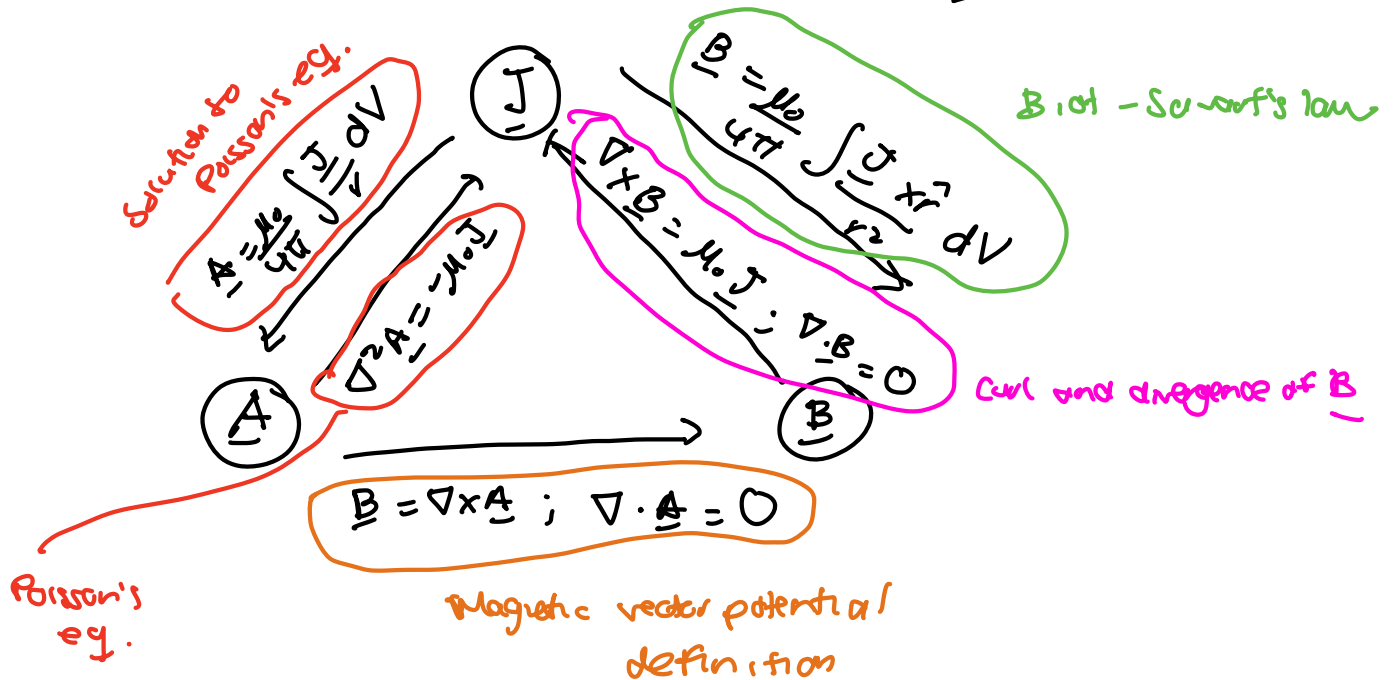 Solution to
Poisson's eq.
A = μ₀/4π ∫ J/r dV
J
B = μ₀/4π ∫ J × r̂ / r² dV
Biot-Savart's law
∇²A = -μ₀J
∇×B = μ₀J ; ∇·B = 0
Curl and divergence of B
A
B
B = ∇×A ; ∇·A = 0
Poisson's
eq.
Magnetic vector potential
definition